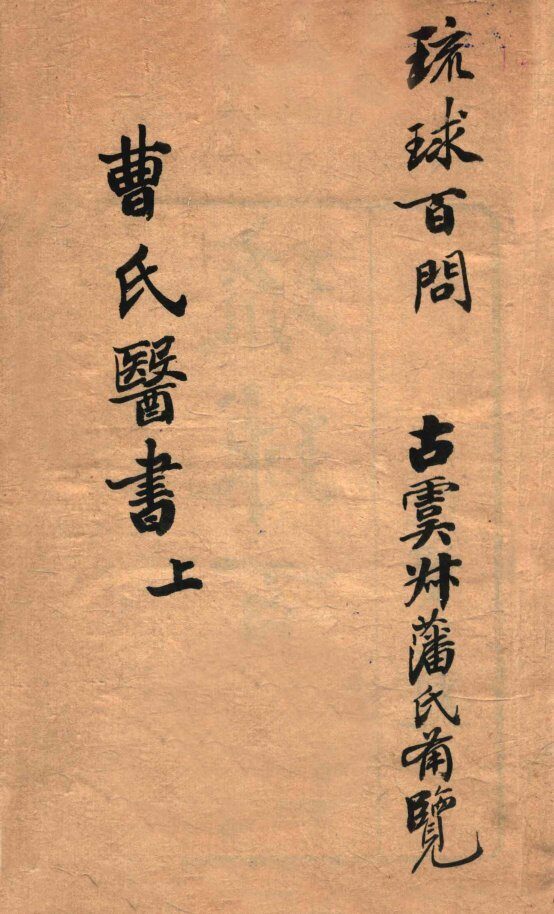 琉球百問
古虞藩氏備覽
曹氏醫書
上